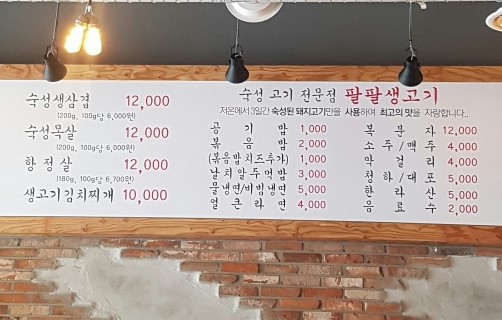 숙성생삼겹 12,000
(200g, 100g당 6,000원)
숙성목살 12,000
(200g, 100g당 6,000원)
항정살 12,000
(180g, 100g당 6,700원)
생고기김치찌개 10,000
숙성 고기 전문점 팔팔생고기
저온에서 3일간 숙성된 돼지고기만을 사용하여 최고의 맛을 자랑합니다..
공기밥 1,000
볶음밥 2,000
(볶음밥치즈추가) 1,000
날치알주먹밥 3,000
물냉면/비빔냉면 5,000
얼큰라면 4,000
복분자 12,000
소주/맥주 4,000
막걸리 4,000
청하/대포 5,000
한라산 5,000
음료수 2,000